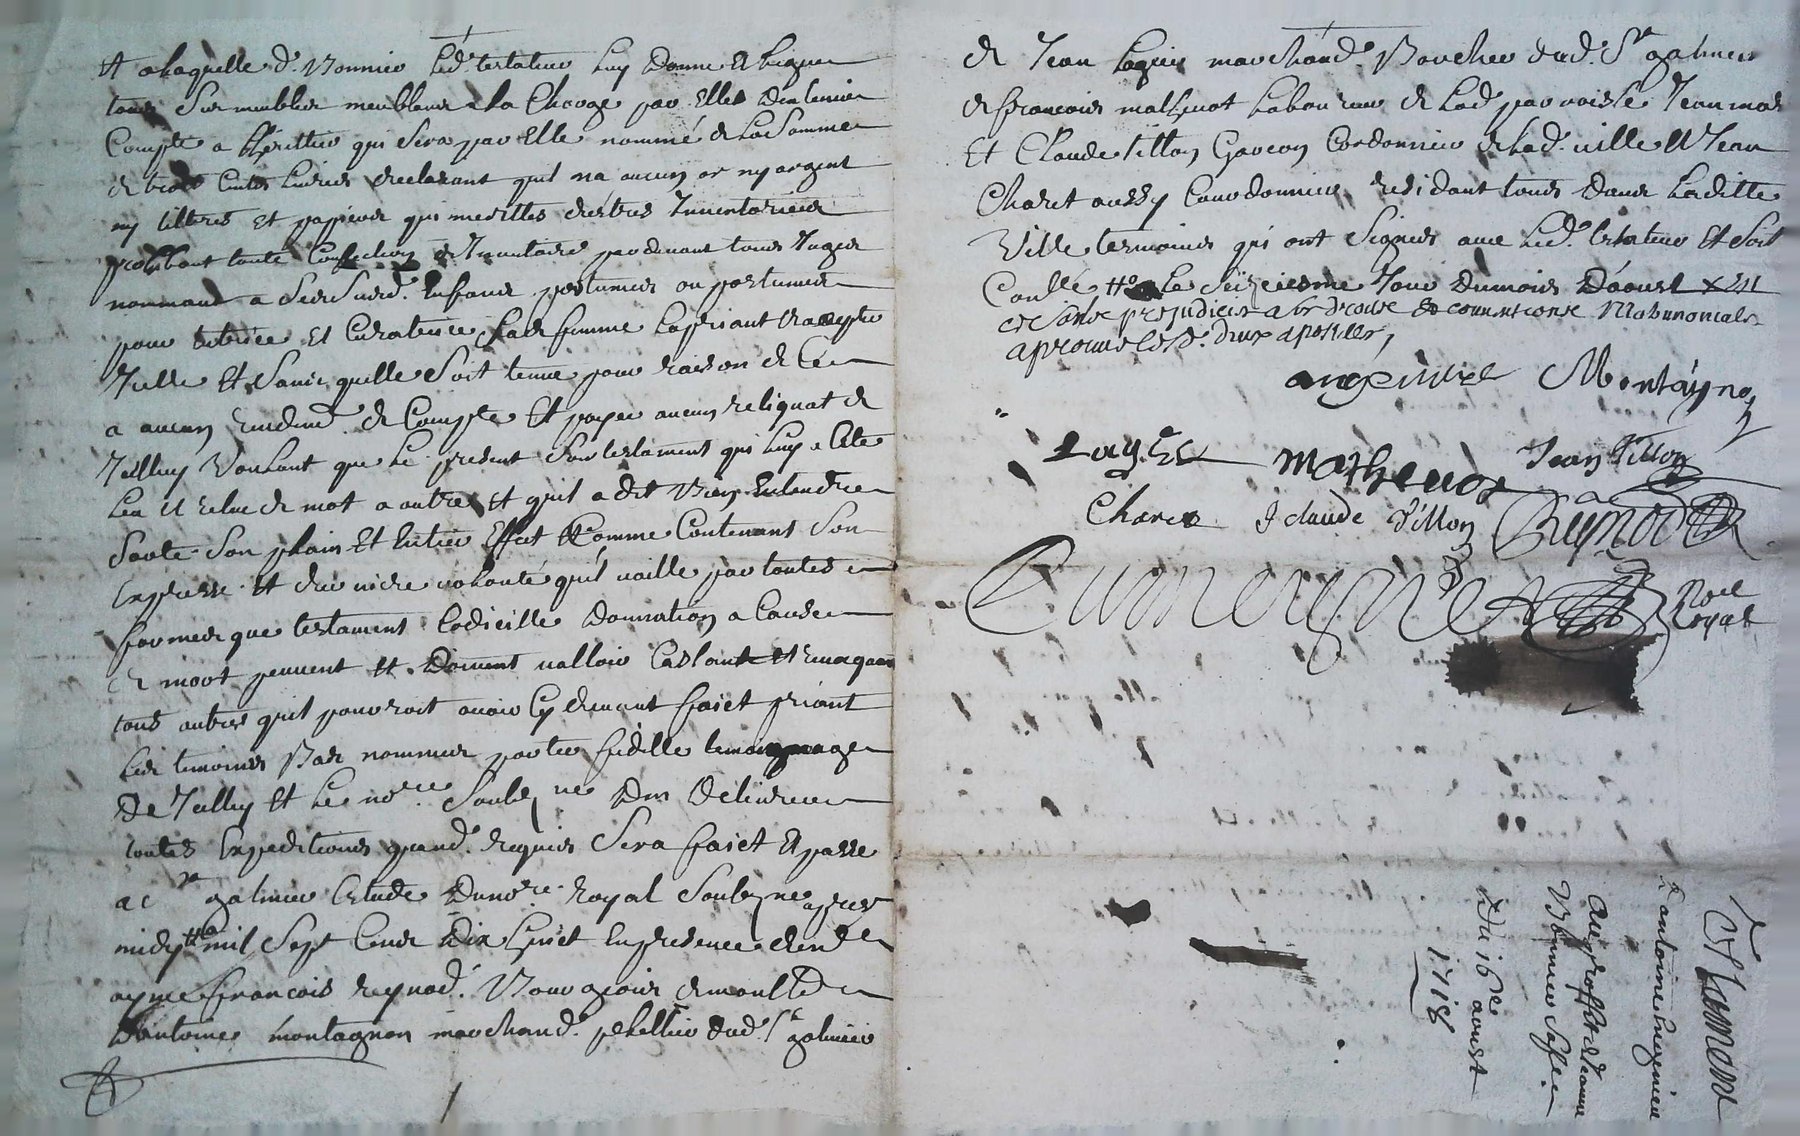 et a laquelle d. Bonnier led. testateur luy donne et legue
tous ses meubles meublans a la charge par elle de tenir
compte a l'heritier qui sera par elle nommé de la somme
de trois cents livres declarant quil na aucun or ny argent
ny tiltres et papiers qui merittes destres inventoriéés
prohibant toute confection d'inventaire pardevant tous juges
nommant a sesdits enfans postumes ou postume
pour tutrice et curatrice sad. femme la priant d'accepter
Icelle et sans quelle soit tenue pour raison de ce
a aucun rendem. de compte et payer aucun reliquat de
Icelluy voulant que le present son testament qui luy a esté
leu et releu de mot a autre et quil a dit bien entendre
sorte son plain et entier effet et comme contenant son
expresse et derniere volonté quil vaille par toutes
formes que testament codicille donnation a cause
de mort peuvent et doivent valloir cassant et revoquant
tous autres quil pourroit avoir cy devant faict priant
les temoins bas nommes porter fidelle temoignage
de Icelluy et le nore. soubsne. den delivrer
toutes expeditions quand. requis sera faict et passe
a St galmier estude du nore. royal soubsne apres
midy mil sept cents dix huict en presence de
ayme francois reynod. Bourgeois
d'antoine montagnon marchand. pellier dud. St galmier
de Jean Lagier marchand. Boucher dud. St galmier
de francois mathevot laboureur de lad. parroisse Jean
et Claude tillon garcon cordonnier de lad. ville et Jean
Charet aussy courdonnier residant tous dans laditte
ville temoins qui ont signes avec led. testateur et soit
conlle. le seizieme jour du mois d'aoust
et sans prejudicier a la d. convention matrimoniale
aprouve lesd. deux apostilles,
angenieur Montayno
Lagier mathevot Jean Tillon
Charet J claude Tillon Reynod
Dumeygne Nore
Royal
Testament
d'antoine angenieur
au proffit de Jeanne
Bonnier sa fe.
Du 16e aoust
1718